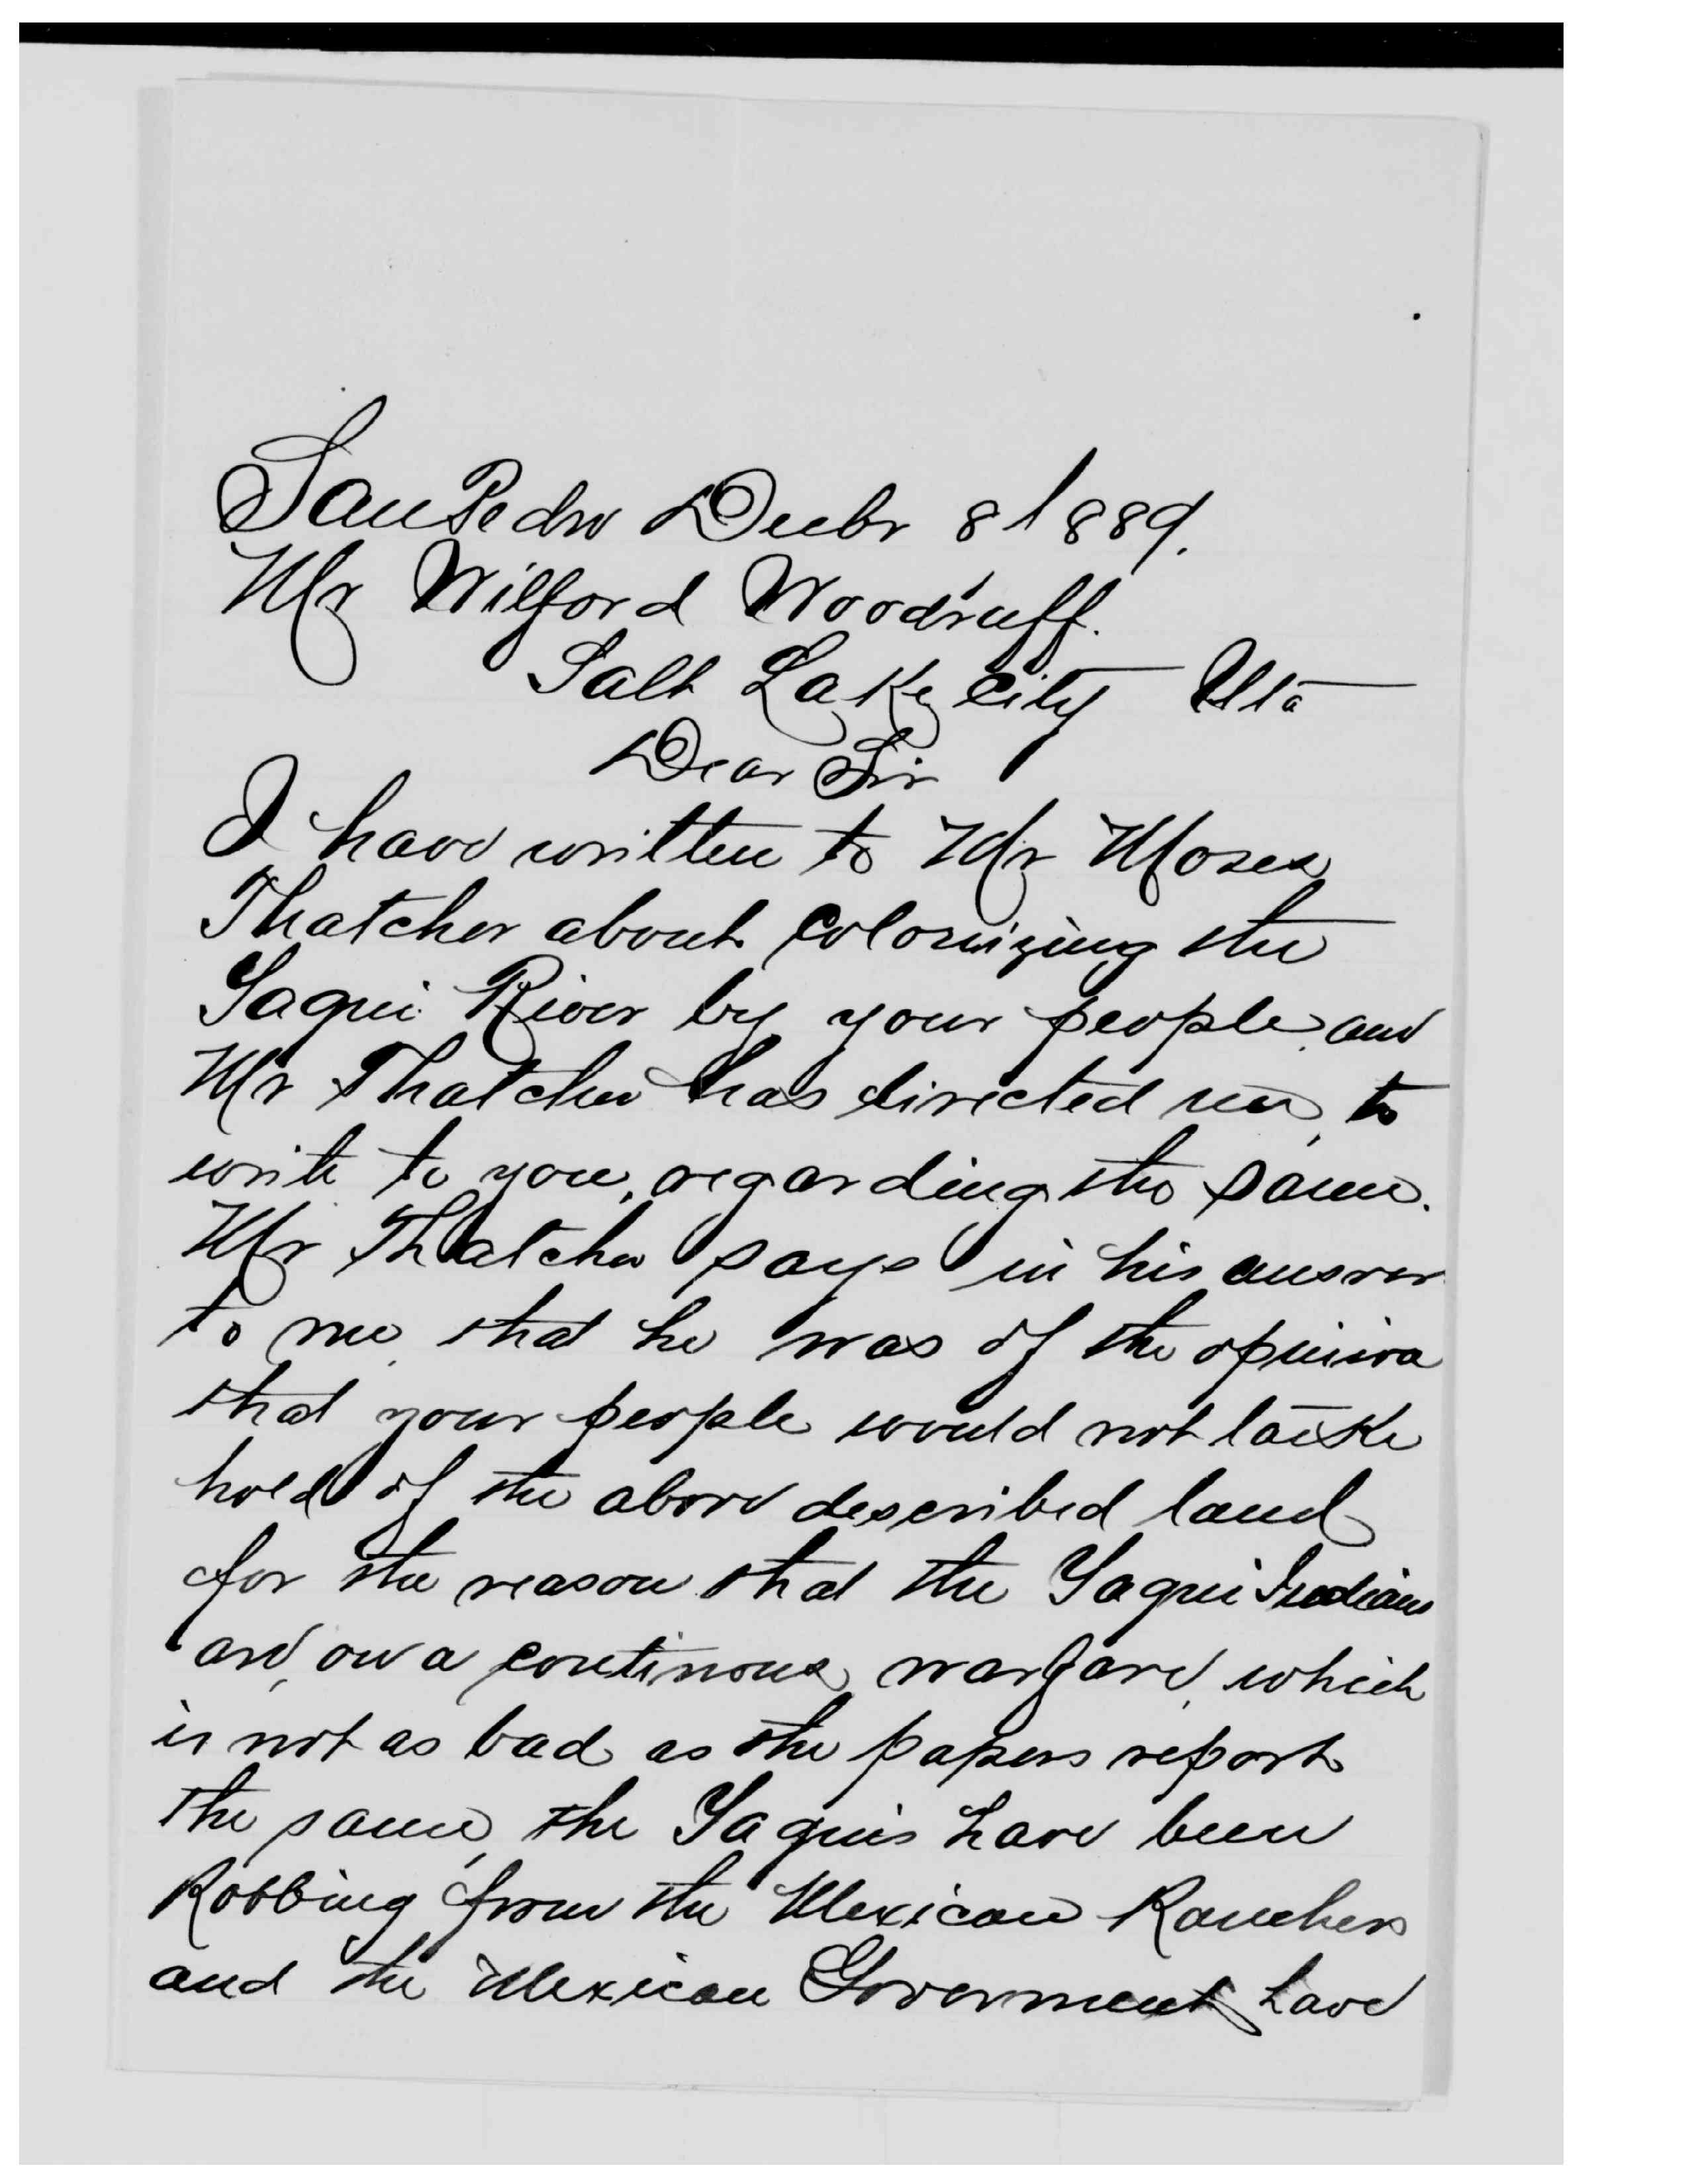 San Pedro Decbr 8 1889.
Mr Wilford Woodruff.
Salt Lake City Uta
Dear Sir
I have written to Mr Moses
Thatcher about colonizing the
Yaqui River by your people, and
Mr Thatcher has directed me, to
write to you, regarding the same.
Mr Thatcher says in his answer
to me, that he was of the opinion
that your people would not take
hold of the above described land
for the reason that the Yaqui Indians
are, on a continous warfare, which
is not as bad as the papers report
the same, the Yaquis have been
Robbing from the Mexican Ranchers
and the Mexican Goverment have